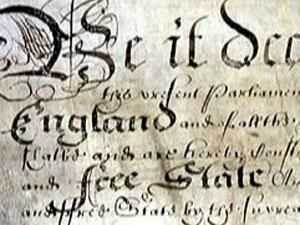 Be it dec
this present Parliamen
England and of all the
shalbe and are hereby Const
and Free State
and ffree State by the Supreme